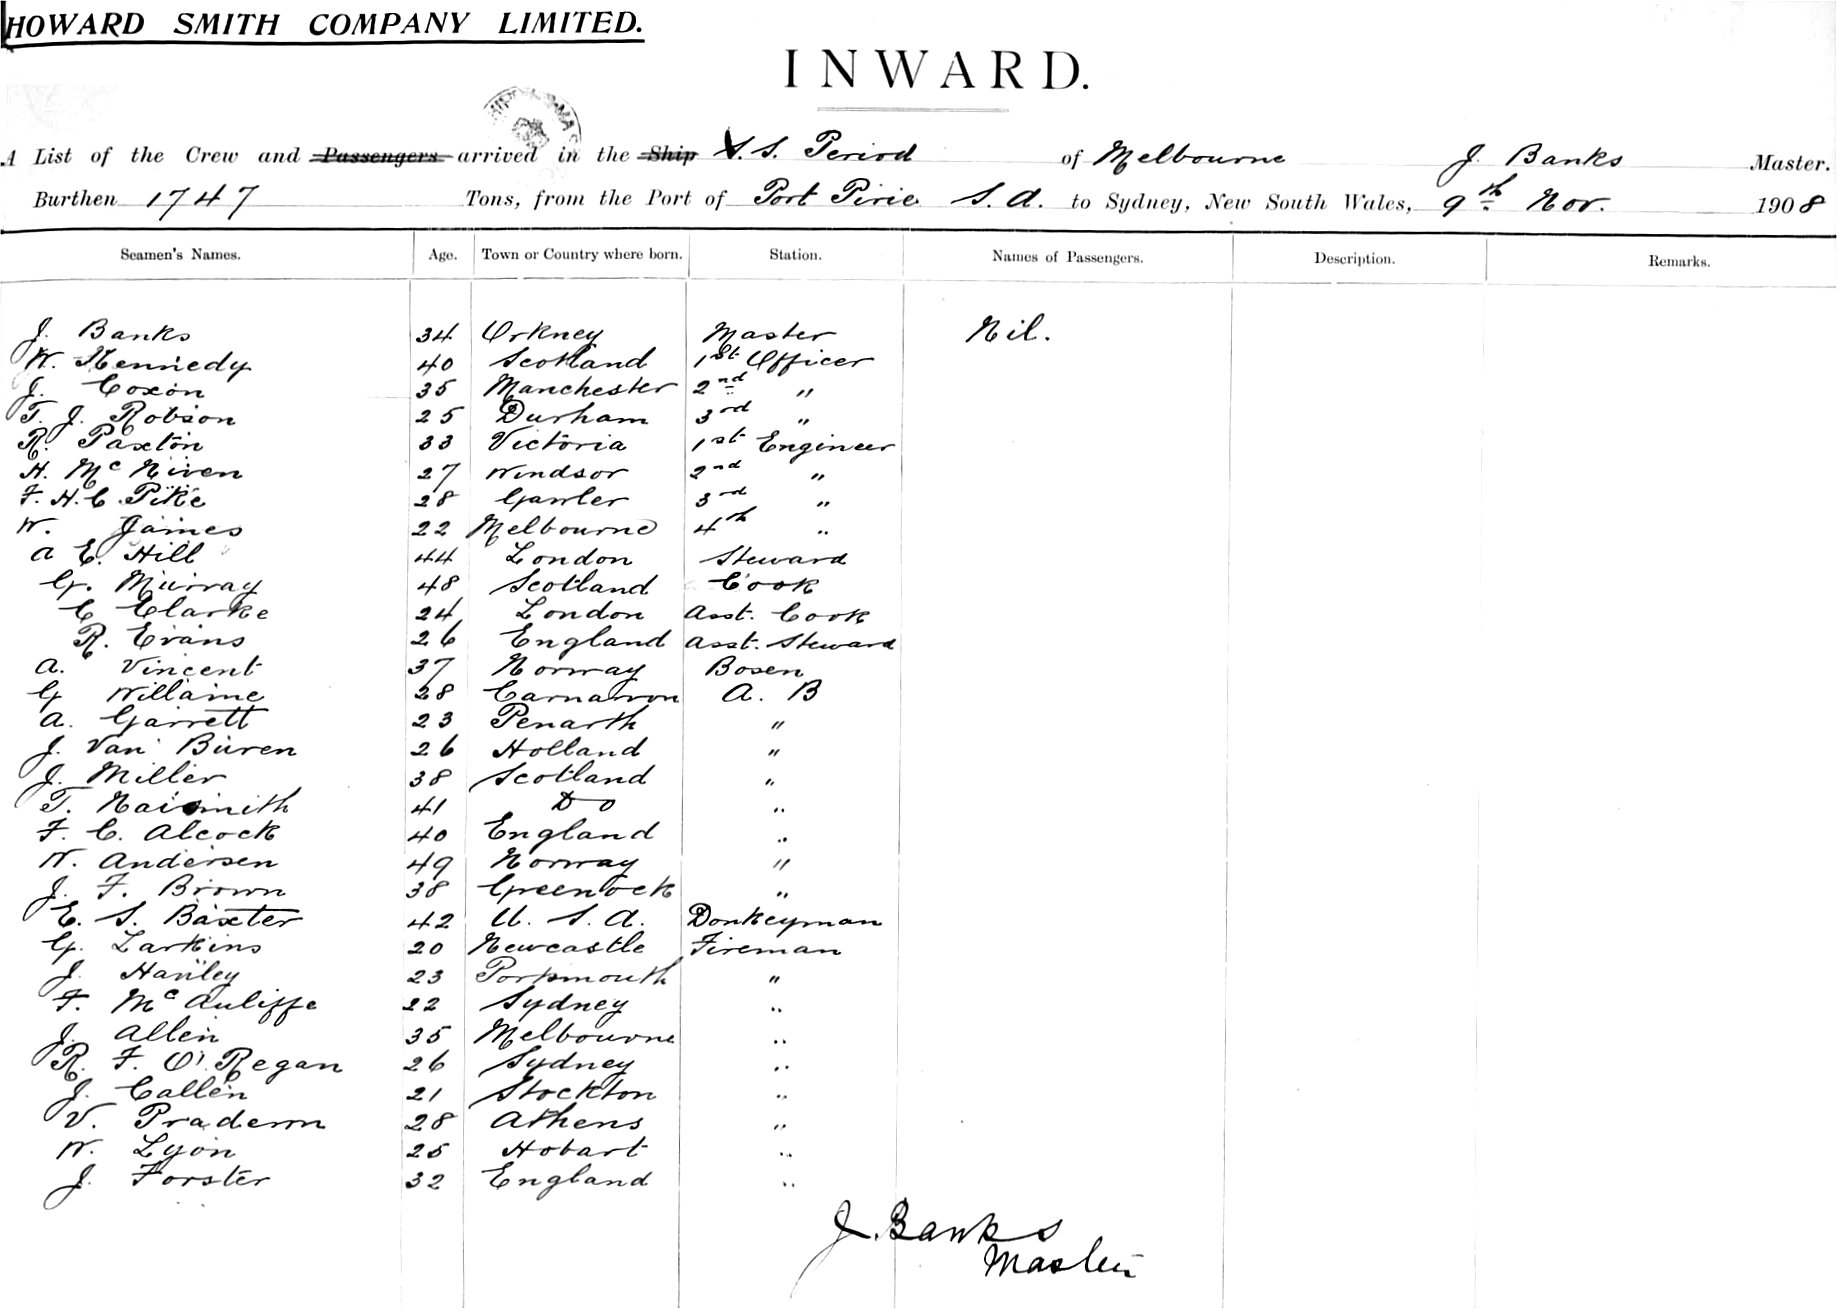 HOWARD SMITH COMPANY LIMITED.
INWARD.
A List of the Crew and Passengers arrived in the Ship S.S. Period of Melbourne J. Banks Master.
Burthen 1747 Tons, from the Port of Port Pirie S.A. to Sydney, New South Wales, 9th Nov. 1908
Seamen's Names. Age. Town or Country where born. Station. Names of Passengers. Description. Remarks.
J. Banks 34 Orkney Master Nil.
W. Kennedy 40 Scotland 1st Officer
J. Coxon 35 Manchester 2nd "
T. J. Robson 25 Durham 3rd "
R. Paxton 33 Victoria 1st Engineer
H. McNiven 27 Windsor 2nd "
F. H. C. Pike 28 Gawler 3rd "
W. James 22 Melbourne 4th "
A E. Hill 44 London Steward
G. Murray 48 Scotland Cook
C Clarke 24 London Asst. Cook
R. Evans 26 England Asst. Steward
A. Vincent 37 Norway Bosen
G Willaime 28 Carnarvon A. B
A. Garrett 23 Penarth "
J. Van Buren 26 Holland "
J. Miller 38 Scotland "
T. Naismith 41 Do "
F. C. Alcock 40 England "
W. Andersen 49 Norway "
J. F. Brown 38 Greenock "
E. S. Baxter 42 U. S. A. Donkeyman
G. Larkins 20 Newcastle Fireman
J. Hanley 23 Portsmouth "
F. McAuliffe 22 Sydney "
J. Allen 35 Melbourne "
R. F. O'Regan 26 Sydney "
J. Callen 21 Stockton "
V. 28 Athens "
W. Lyon 25 Hobart "
J. Forster 32 England "
J. Banks
Master